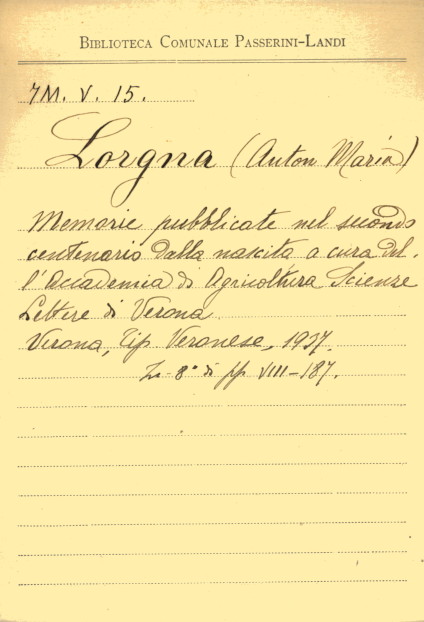 BIBLIOTECA COMUNALE PASSERINI-LANDI
7M. V. 15.
Lorgna (Anton Maria)
Memorie pubblicate nel secondo
centenario dalla nascita a cura del-
l'Accademia di Agricoltura Scienze
Lettere di Verona
Verona, Tip. Veronese, 1937.
In-8° di pp. VIII-187.